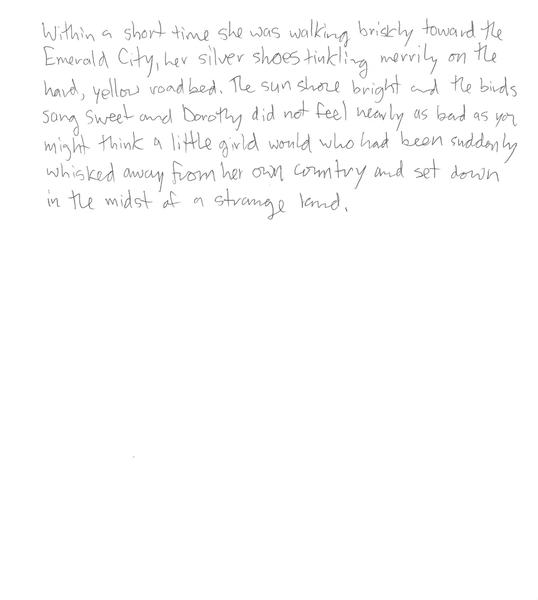 Within a short time she was walking briskly toward the
Emerald City, her silver shoes tinkling merrily on the
hard, yellow roadbed. The sun shone bright and the birds
sang sweet and Dorothy did not feel nearly as bad as you
might think a little girld would who had been suddenly
whisked away from her own country and set down
in the midst of a strange land.